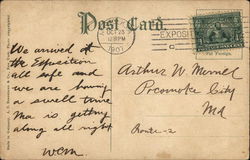 Post Card
OCT 23
12 30 PM
1907
EXPOSI
We arrived at
the Exposition
all safe and
we are having
a swell time
Ma is getting
along all right
WCM
Arthur W. Merrill
Pocomoke City
Md
Route-2